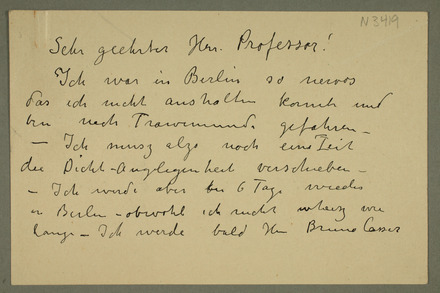 N3419
Sehr geehrter Herr Professor!
Ich war in Berlin so nervos
das ich nicht aushalten konnte und
bin nach Travemunde gefahren –
– Ich musz also noch eine Zeit
die Dicht-Anglegenheit verschieben –
– Ich werde aber 6 Tage wieder
in Berlin – obwohl ich nicht wie
lange – Ich werde bald Herr Bruno Casser